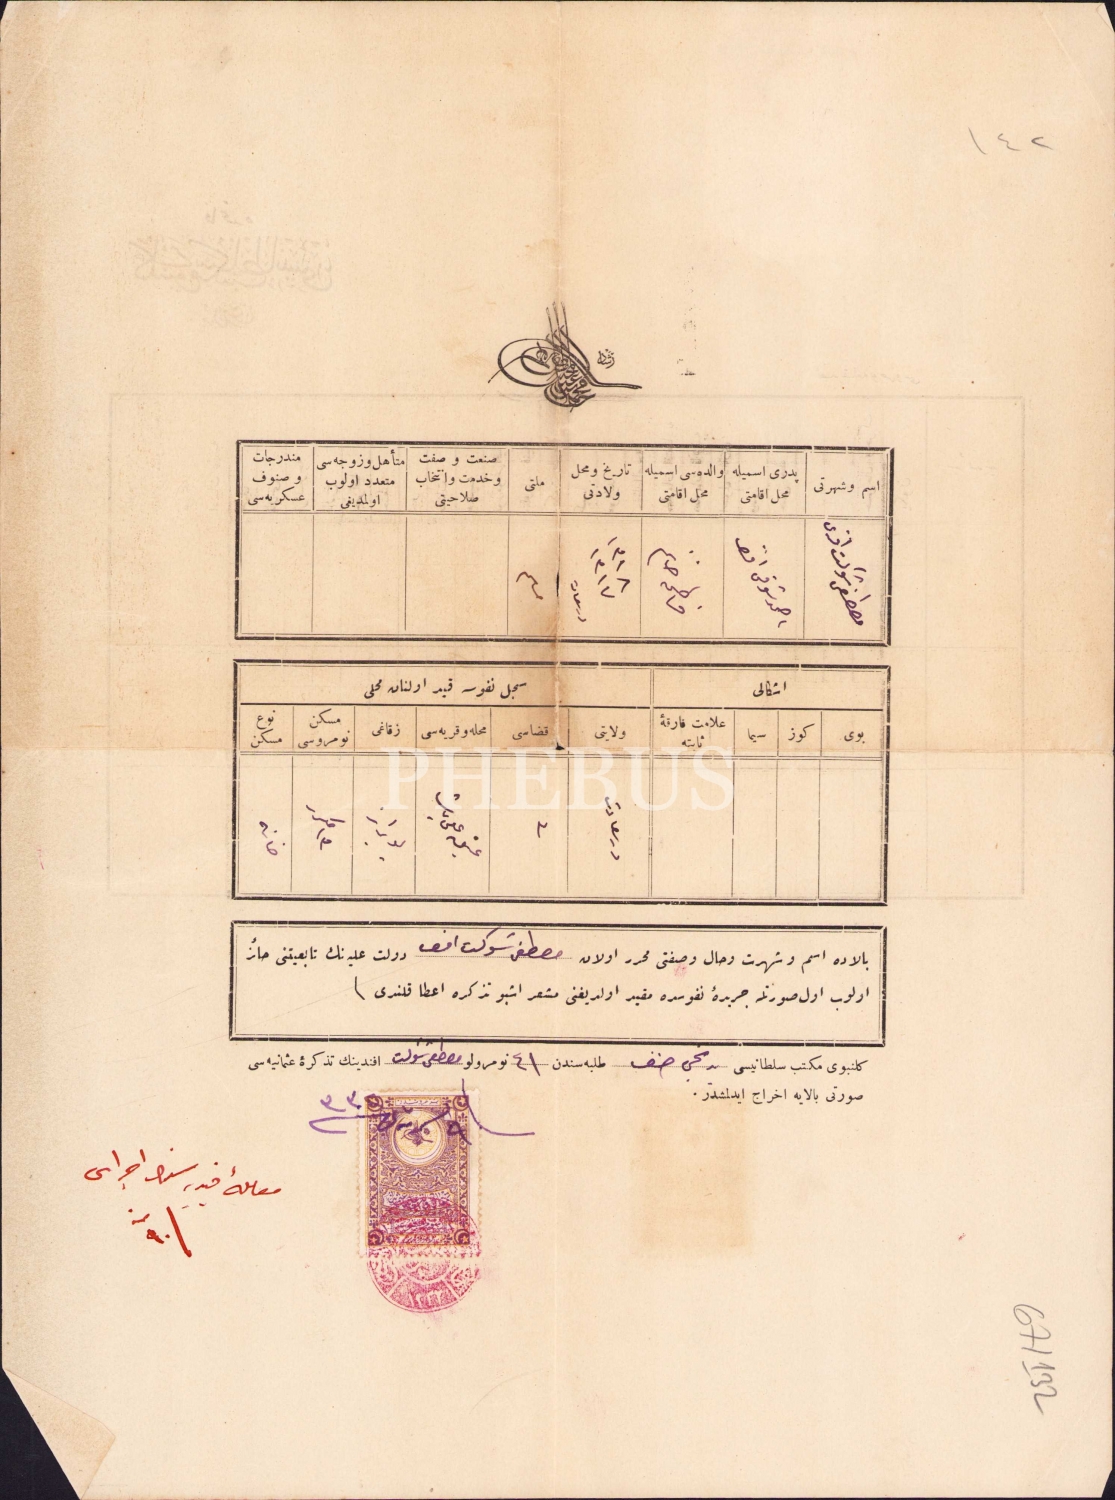 ١٤٢
رشاد
اسم وشهرتی
پدری اسمیله محل اقامتی
والده‌سی اسمیله محل اقامتی
تاریخ ومحل ولادتی
ملتی
صنعت و صفت وخدمت وانتخاب صلاحیتی
متأهل وزوجه‌سی متعدد اولوب اولمدیغی
مندرجات و صنوف عسكریه‌سی
مصطفی شوكت افندی
احمد شوقی افندی
فاطمه خانم
١٣١٨
١٣١٧
درسعادت
مسلم
اشكالی
سجل نفوسه قید اولنان محلی
بوی
كوز
سیما
علامت فارقۀ ثابته
ولایتی
قضاسی
محله وقریه‌سی
زقاغی
مسكن نومروسی
نوع مسكن
درسعادت
خانه
PHEBUS
بالاده اسم و شهرت وحال وصفتی محرر اولان مصطفی شوكت افندی دولت علیه‌نك تابعیتنی حائز
اولوب اول صورتله جریدۀ نفوسده مقید اولدیغنی مشعر اشبو تذكره اعطا قلندی
كلنبوی مكتب سلطانیسی نجی صنف طلبه‌سندن ٤١ نومرولو مصطفی شوكت افندینك تذكرۀ عثمانیه‌سی
صورتی بالایه اخراج ایدلمشدر .
معاملۀ قیدیه سنه اجراسی
671132